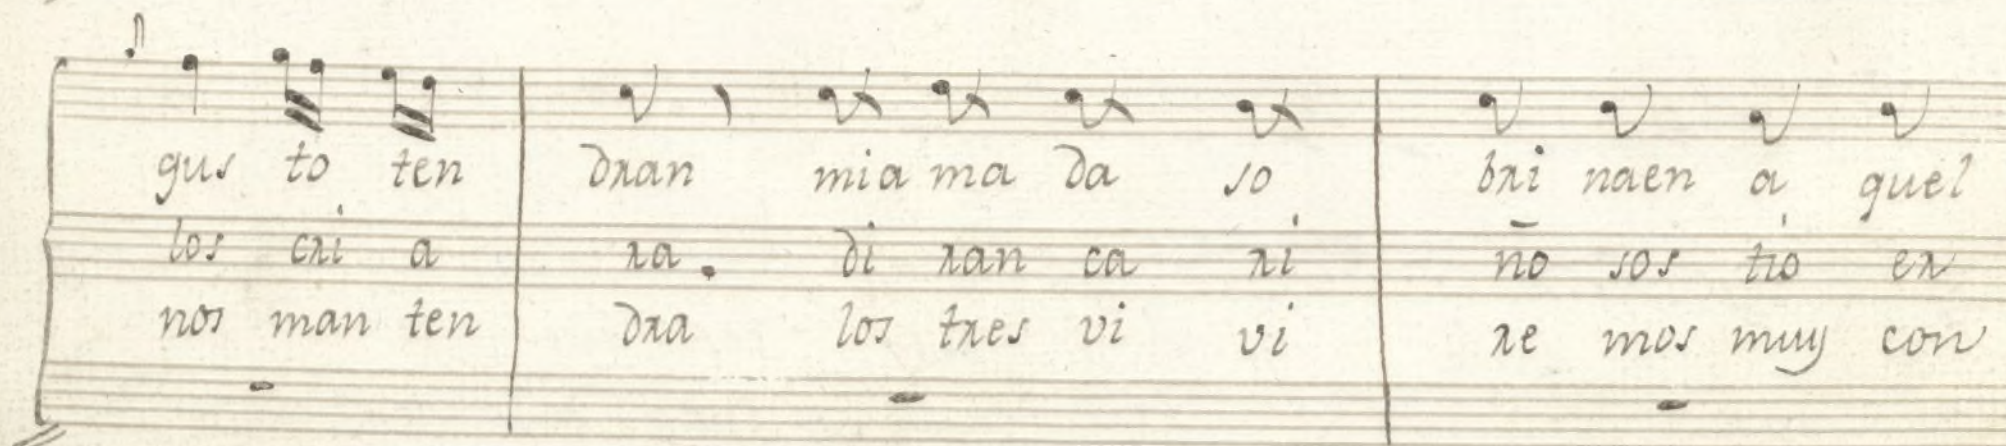 gus to ten dran mia ma da so bri naen a quel
los cri a ra. di ran ca ri ño sos tio en
nos man ten dra los tres vi vi re mos muy con